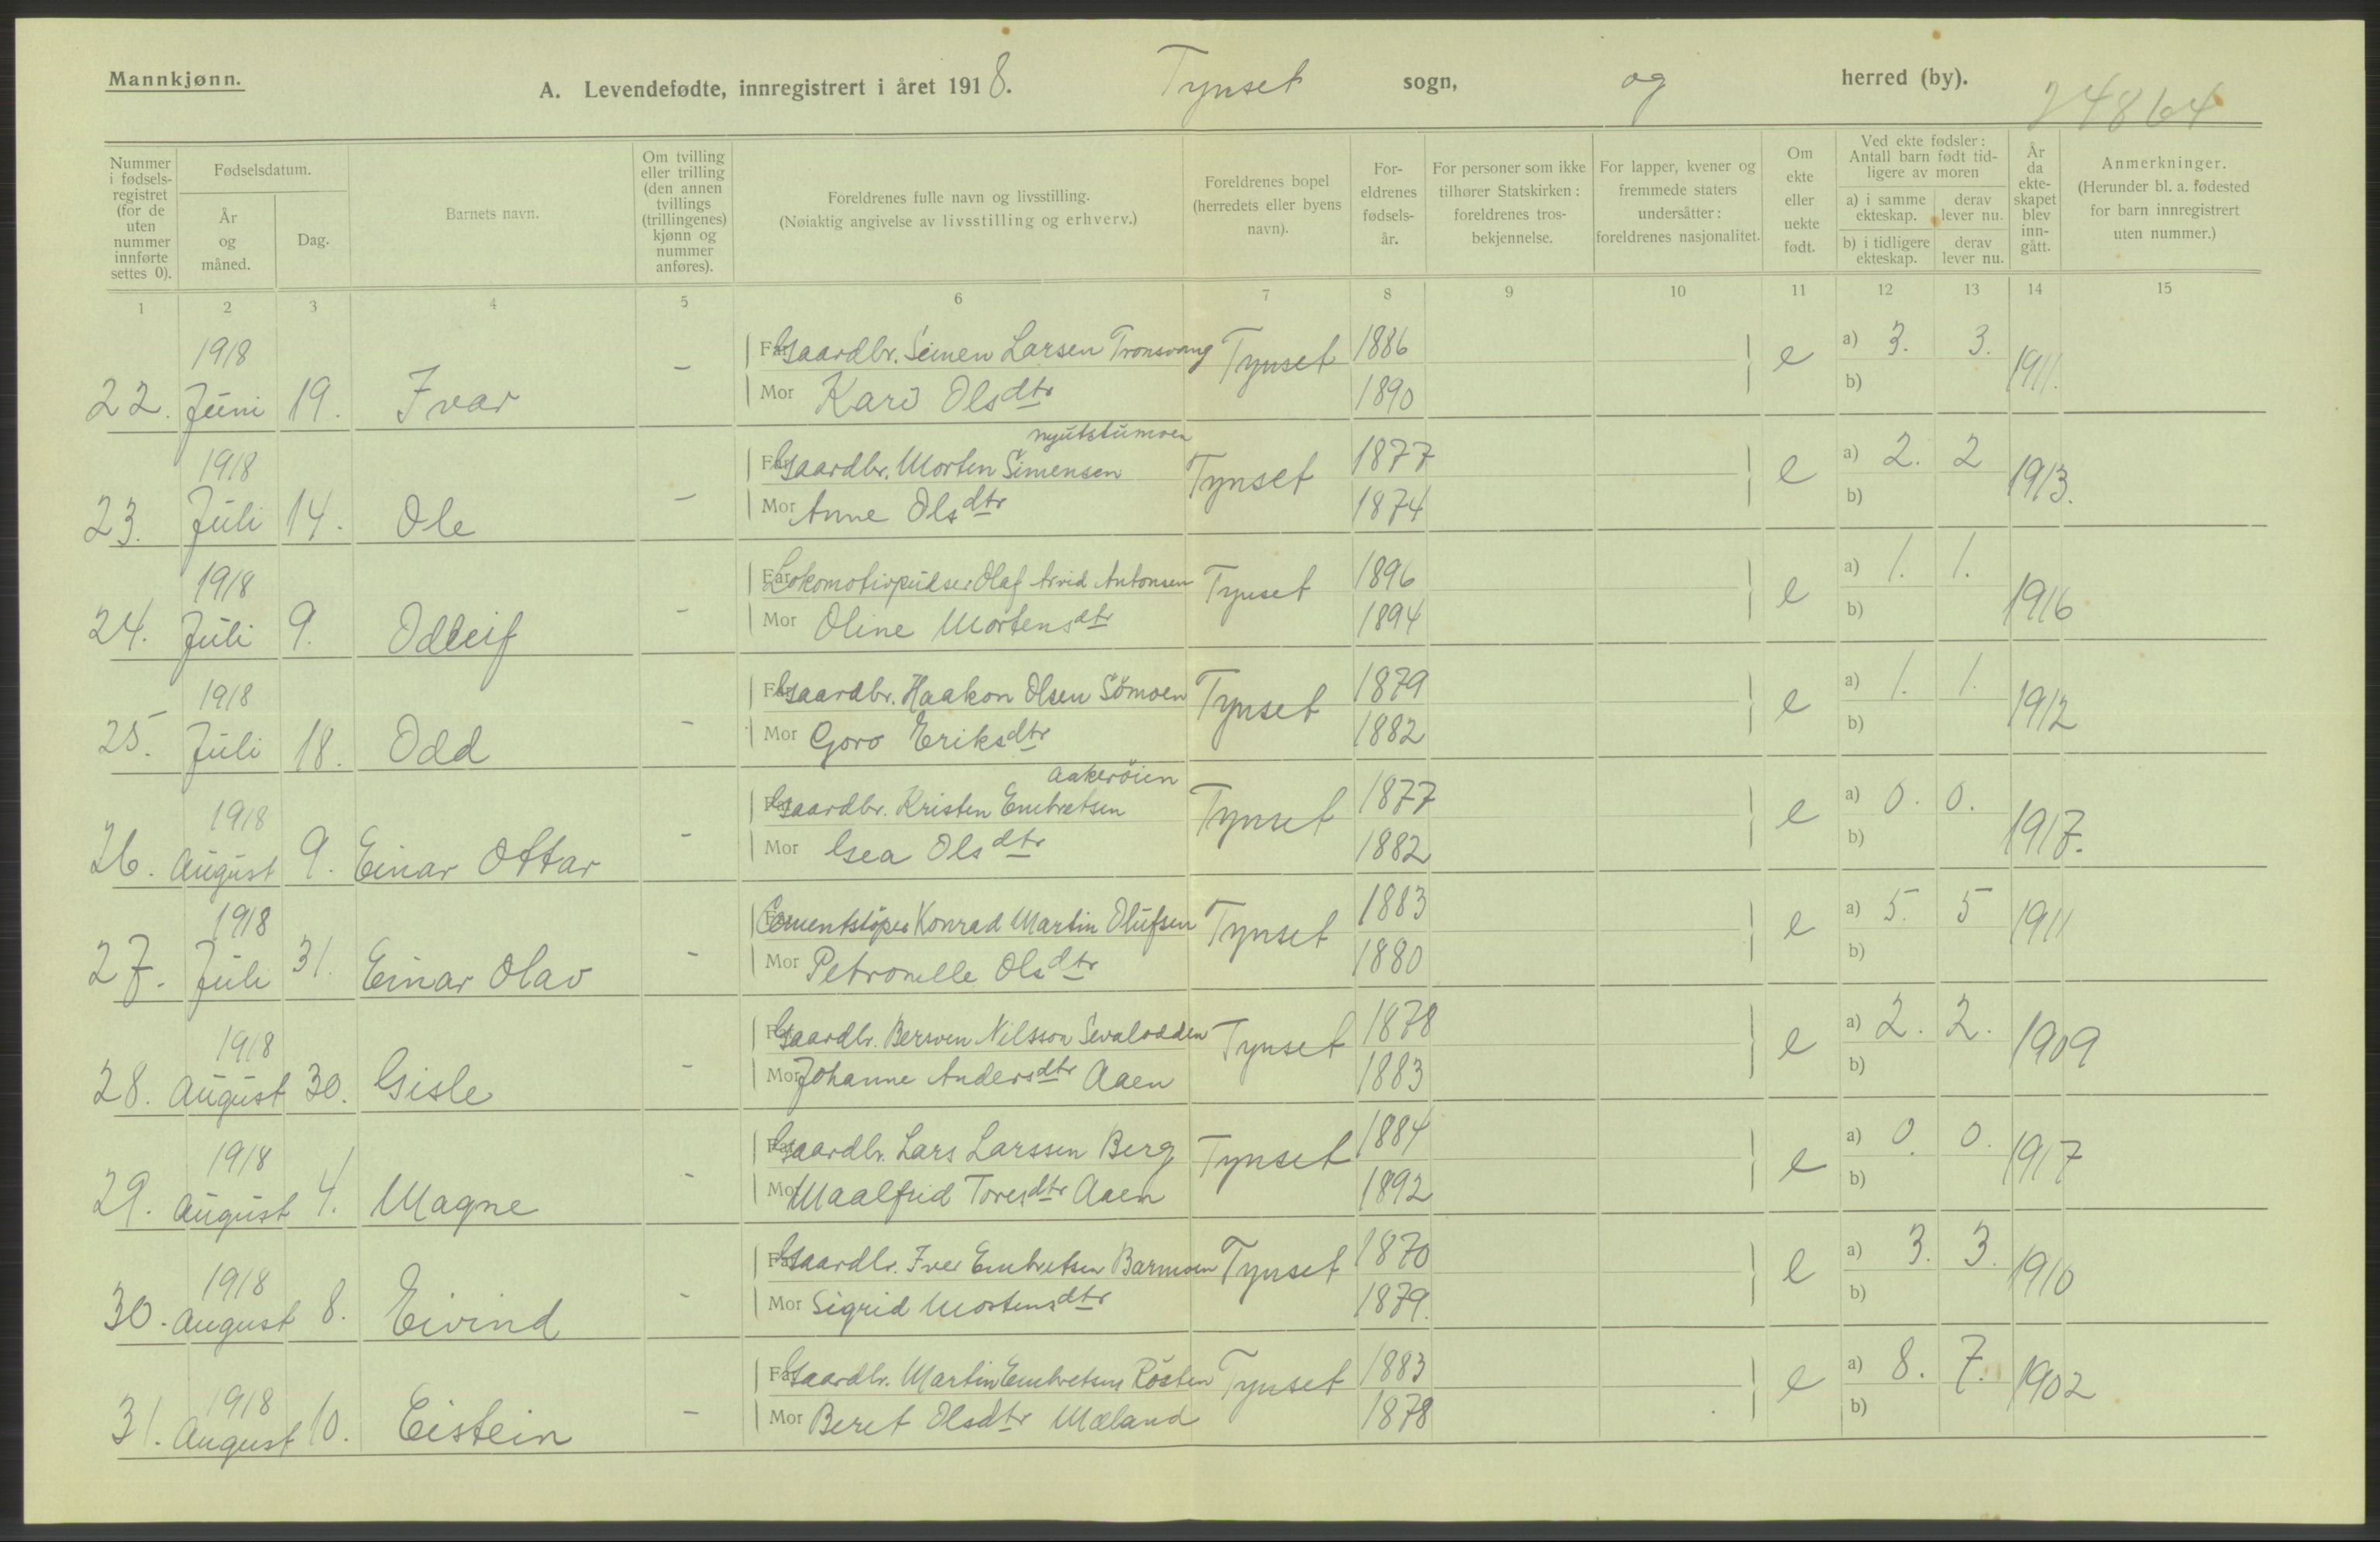 Mannkjønn.
A. Levendefødte, innregistrert i året 1918. Tynset sogn, og herred (by).
24864
Nummer i fødsels-registret (for de uten nummer innførte settes 0).
Fødselsdatum.
År og måned.
Dag.
Barnets navn.
Om tvilling eller trilling (den annen tvillings (trillingenes) kjønn og nummer anføres).
Foreldrenes fulle navn og livsstilling.
(Nøiaktig angivelse av livsstilling og erhverv.)
Foreldrenes bopel (herredets eller byens navn).
For-eldrenes fødsels-år.
For personer som ikke tilhører Statskirken: foreldrenes tros-bekjennelse.
For lapper, kvener og fremmede staters undersåtter: foreldrenes nasjonalitet.
Om ekte eller uekte født.
Ved ekte fødsler: Antall barn født tid-ligere av moren
a) i samme ekteskap. derav lever nu.
b) i tidligere ekteskap. derav lever nu.
År da ekte-skapet blev inn-gått.
Anmerkninger.
(Herunder bl. a. fødested for barn innregistrert uten nummer.)
1 2 3 4 5 6 7 8 9 10 11 12 13 14 15
1918 Far Gaardbr. Simen Larsen Tronsvang Tynset 1886 e a) 3. 3. 1911.
22. Juni 19. Ivar - Mor Kari Olsdtr 1890 b)
nyutstumoen
1918 Far Gaardbr. Morten Simensen Tynset 1877 e a) 2. 2 1913.
23. Juli 14. Ole - Mor Anne Olsdtr 1874 b)
1918 Far Lokomotivpudser Olaf Arvid Antonsen Tynset 1896 e a) 1. 1. 1916
24. Juli 9. Odleif - Mor Oline Mortensdtr 1894 b)
1918 Far Gaardbr. Haakon Olsen Sömoen Tynset 1879 e a) 1. 1. 1912
25. Juli 18. Odd - Mor Goro Eriksdtr 1882 b)
Aakeröien
1918 Far Gaardbr. Kristen Embretsen Tynset 1877 e a) 0. 0. 1917.
26. August 9. Einar Ottar - Mor Gea Olsdtr 1882 b)
1918 Far Cementstöper Konrad Martin Olufsen Tynset 1883 e a) 5. 5 1911
27. Juli 31. Einar Olav - Mor Petronelle Olsdtr 1880 b)
1918 Far Gaardbr. Bersven Nilsson Sevalodden Tynset 1878 e a) 2. 2. 1909
28. August 30. Gisle - Mor Johanne Andersdtr Aaen 1883 b)
1918 Far Gaardbr. Lars Larssen Berg Tynset 1884 e a) 0. 0. 1917
29. August 4. Magne - Mor Maalfrid Toresdtr Aaen 1892 b)
1918 Far Gaardbr. Iver Embretsen Tynset 1870 e a) 3. 3. 1910
30. August 8. Eivind - Mor Sigrid Mostensdtr 1879. b)
1918 Far Gaardbr. Martin Embretsen Rösten Tynset 1883 e a) 8. 7. 1902
31. August 10. Eistein - Mor Beret Olsdtr Mæland 1878 b)